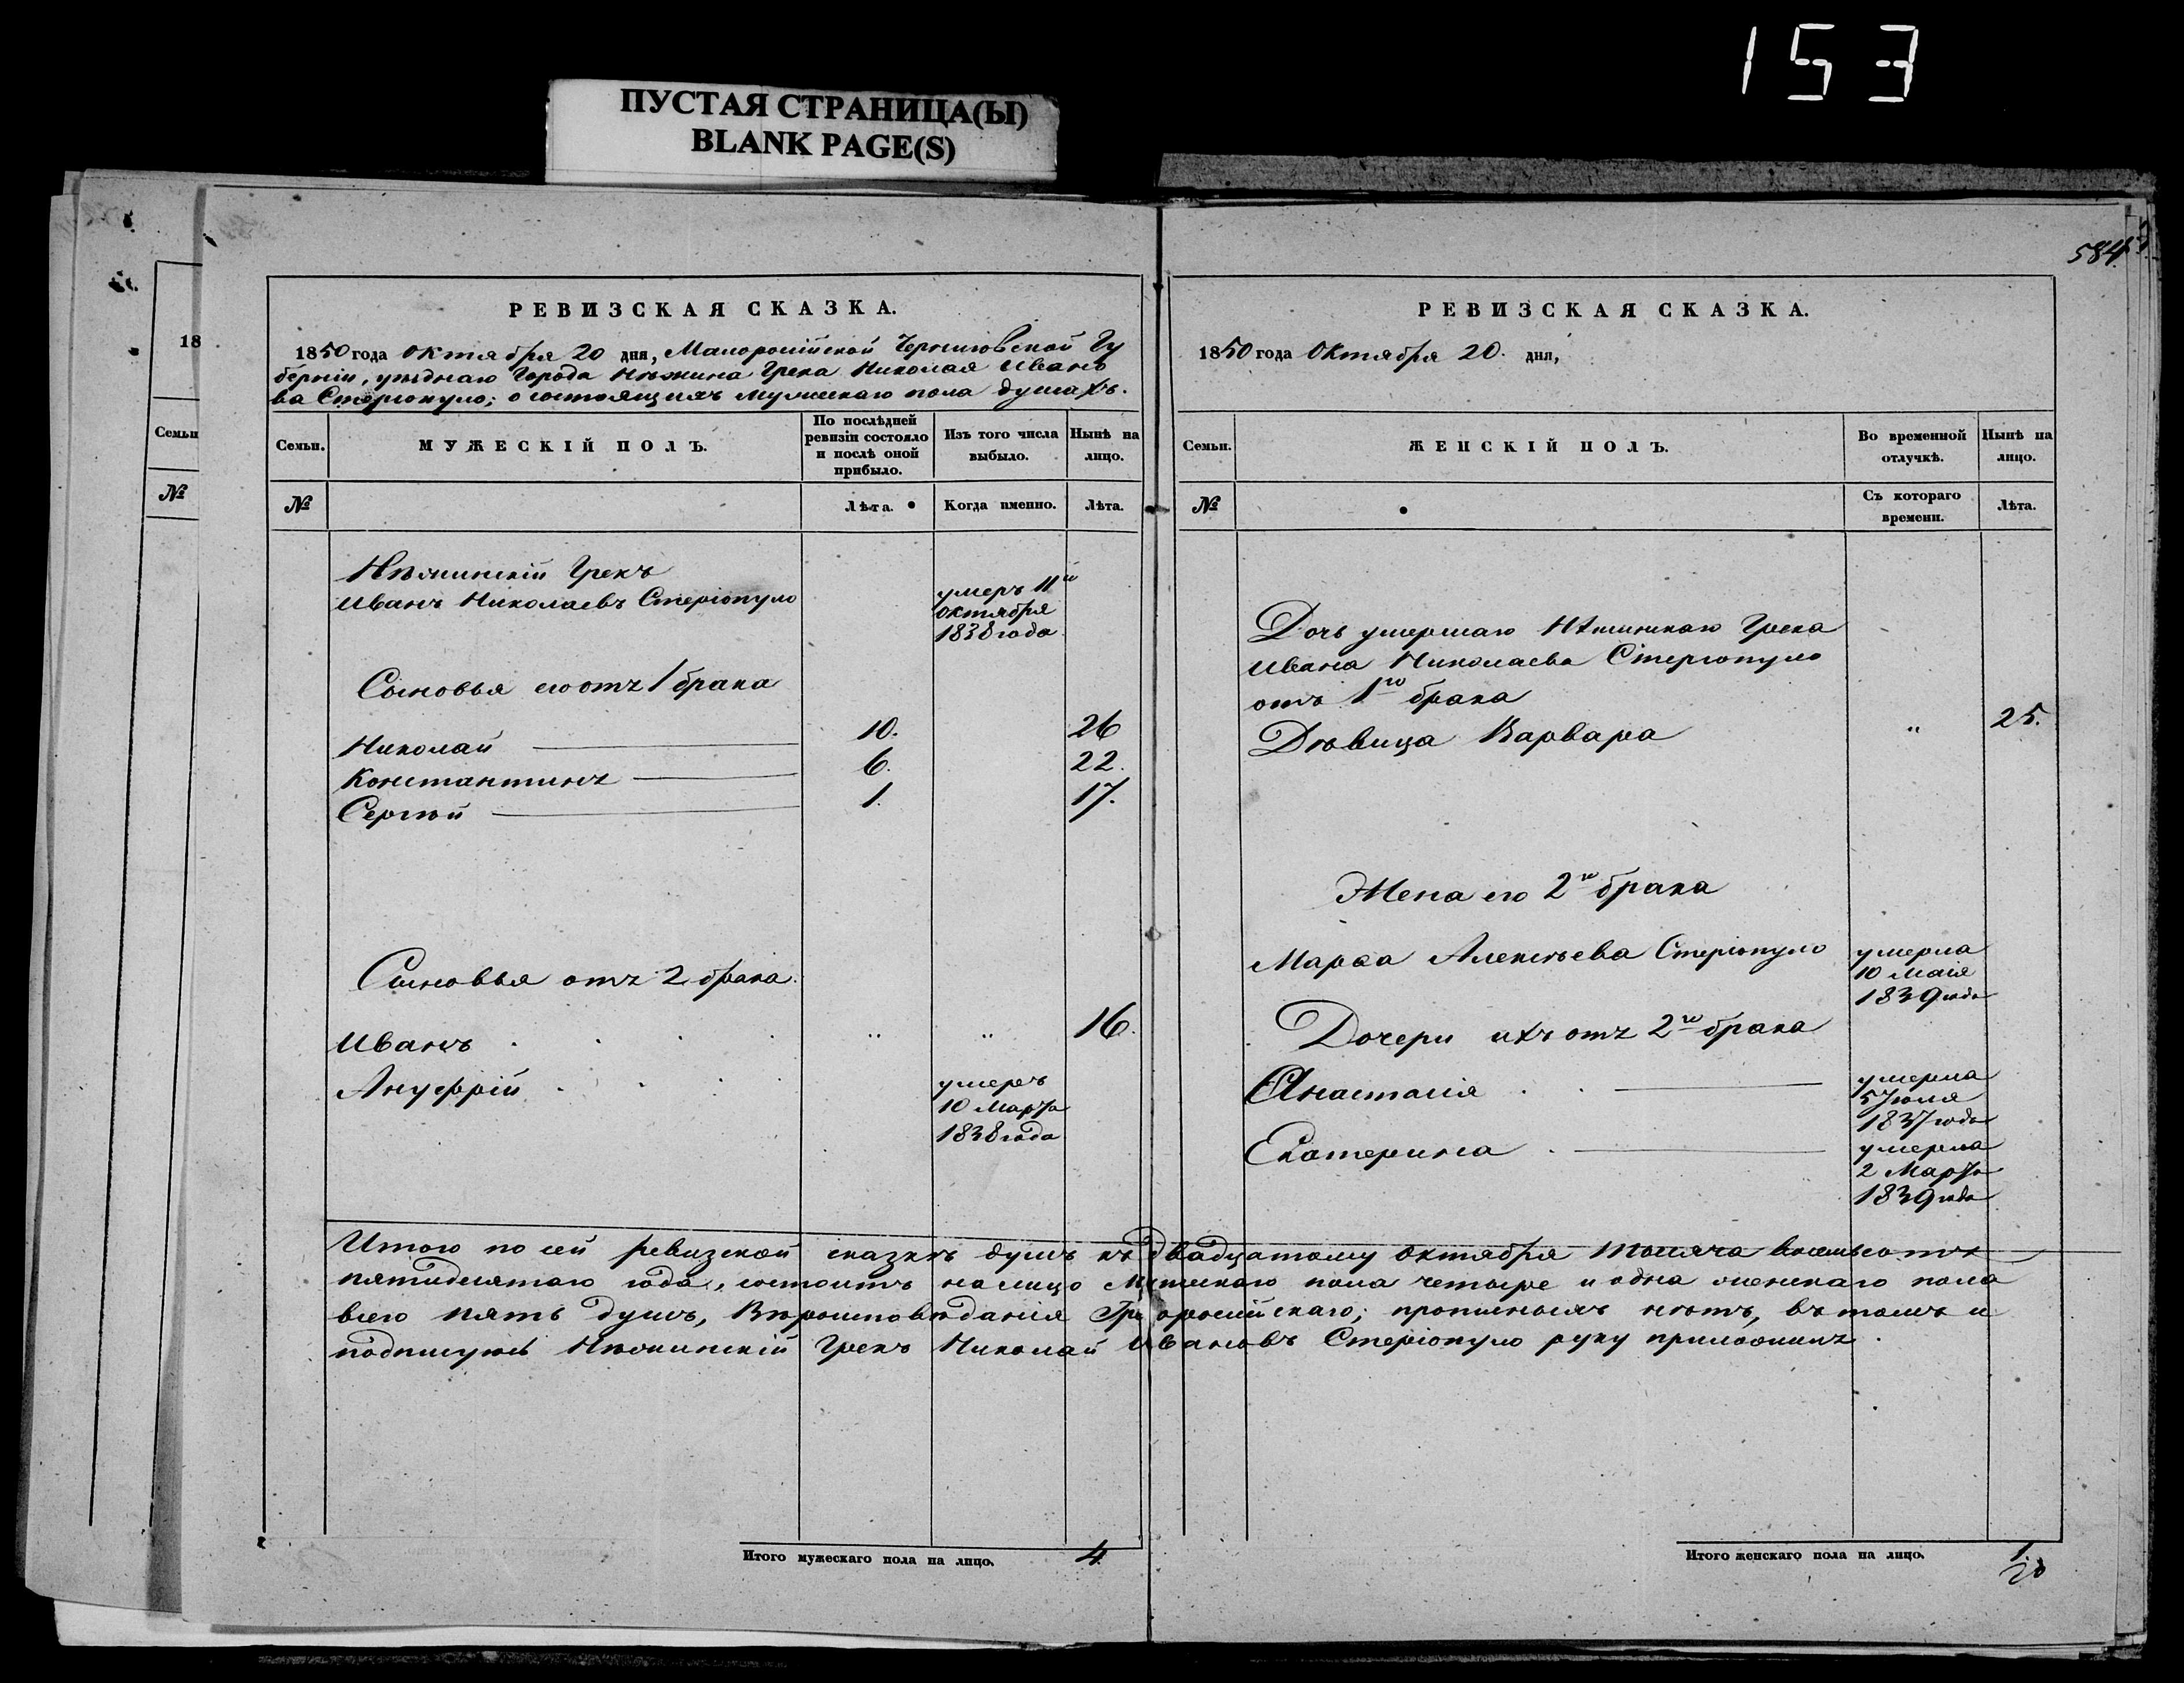 153
ПУСТАЯ СТРАНИЦА(Ы)
BLANK PAGE(S)
18
Семьи
№
РЕВИЗСКАЯ СКАЗКА.
1850 года октября 20 дня, Малоросійской Черниговской Гу
берніи, уѣзднаго Города Нѣжина Грека Николая Ивано
ва Стеріопуло; о состоящихъ мужескаго пола душахъ.
Семьи.
МУЖЕСКІЙ ПОЛЪ.
По послѣдней ревизіи состояло и послѣ оной прибыло.
Изъ того числа выбыло.
Нынѣ на лицо.
№
Лѣта.
Когда именно.
Лѣта.
Нѣжинскій Грекъ
Иванъ Николаевъ Стеріопуло
умеръ 11го
октября
1838 года
Сыновья его отъ 1 брака
Николай 10. 26
Константинъ 6. 22.
Сергѣй 1. 17.
Сыновья отъ 2 брака.
Иванъ " " 16.
Ануфрій
умеръ
10 Марта
1838 года
584.
РЕВИЗСКАЯ СКАЗКА.
1850 года Октября 20. дня,
Семьи.
ЖЕНСКІЙ ПОЛЪ.
Во временной отлучкѣ.
Нынѣ на лицо.
№
Съ котораго времени.
Лѣта.
Дочь умершаго Нѣжинскаго Грека
Ивана Николаева Стеріопуло
отъ 1го брака
Дѣвица Варвара " 25.
Жена его 2го брака
Марѳа Алексѣева Стеріопуло
умерла
10 Маія
1839 года
Дочери ихъ отъ 2го брака
Анастасія
умерла
5 Іюля
1837 года
Екатерина
умерла
2 Марта
1839 года
Итого по сей ревизской сказкѣ душъ къ двадцатому октября тысяча восемьсотъ
пятидесятаго года, состоитъ на лицо Мужескаго пола четыре и одна женскаго пола
всего пять душъ, Вѣроисповѣданія Грекоросійскаго; прописныхъ нѣтъ, въ томъ и
подписуюсь Нѣжинскій Грекъ Николай Ивановъ Стеріопуло руку приложилъ.
Итого мужескаго пола на лицо. 4.
Итого женскаго пола на лицо. 1.